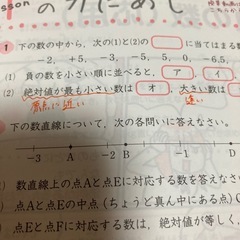 sson のカにあし
1 下の数の中から，次の(1)と(2)の に当てはまる数
-2, +5, -3, -5, 5, 0, -6.5,
(1) 負の数を小さい順に並べると， ア ， イ ，
(2) 絶対値が最も小さい数は オ ， 大きい数は
原点に近い 遠い
下の数直線について，次の各問いに答えなさい。
A B
-3 -2 -1 0
数直線上の点Aと点Eに対応する数を答えなさい
点Aと点Eの中点（ちょうど真ん中にある点）C
点Eと点Fに対応する数は，絶対値が等しく，